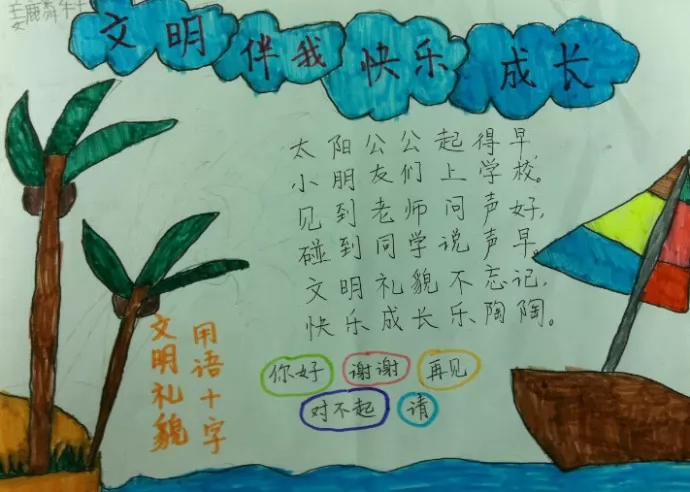 文明伴我快乐成长
太阳公公起得早
小朋友们上学校。
见到老师问声好,
碰到同学说声早。
文明礼貌不忘记,
快乐成长乐陶陶。
文明礼貌
用语十字
你好 谢谢 再见
对不起 请